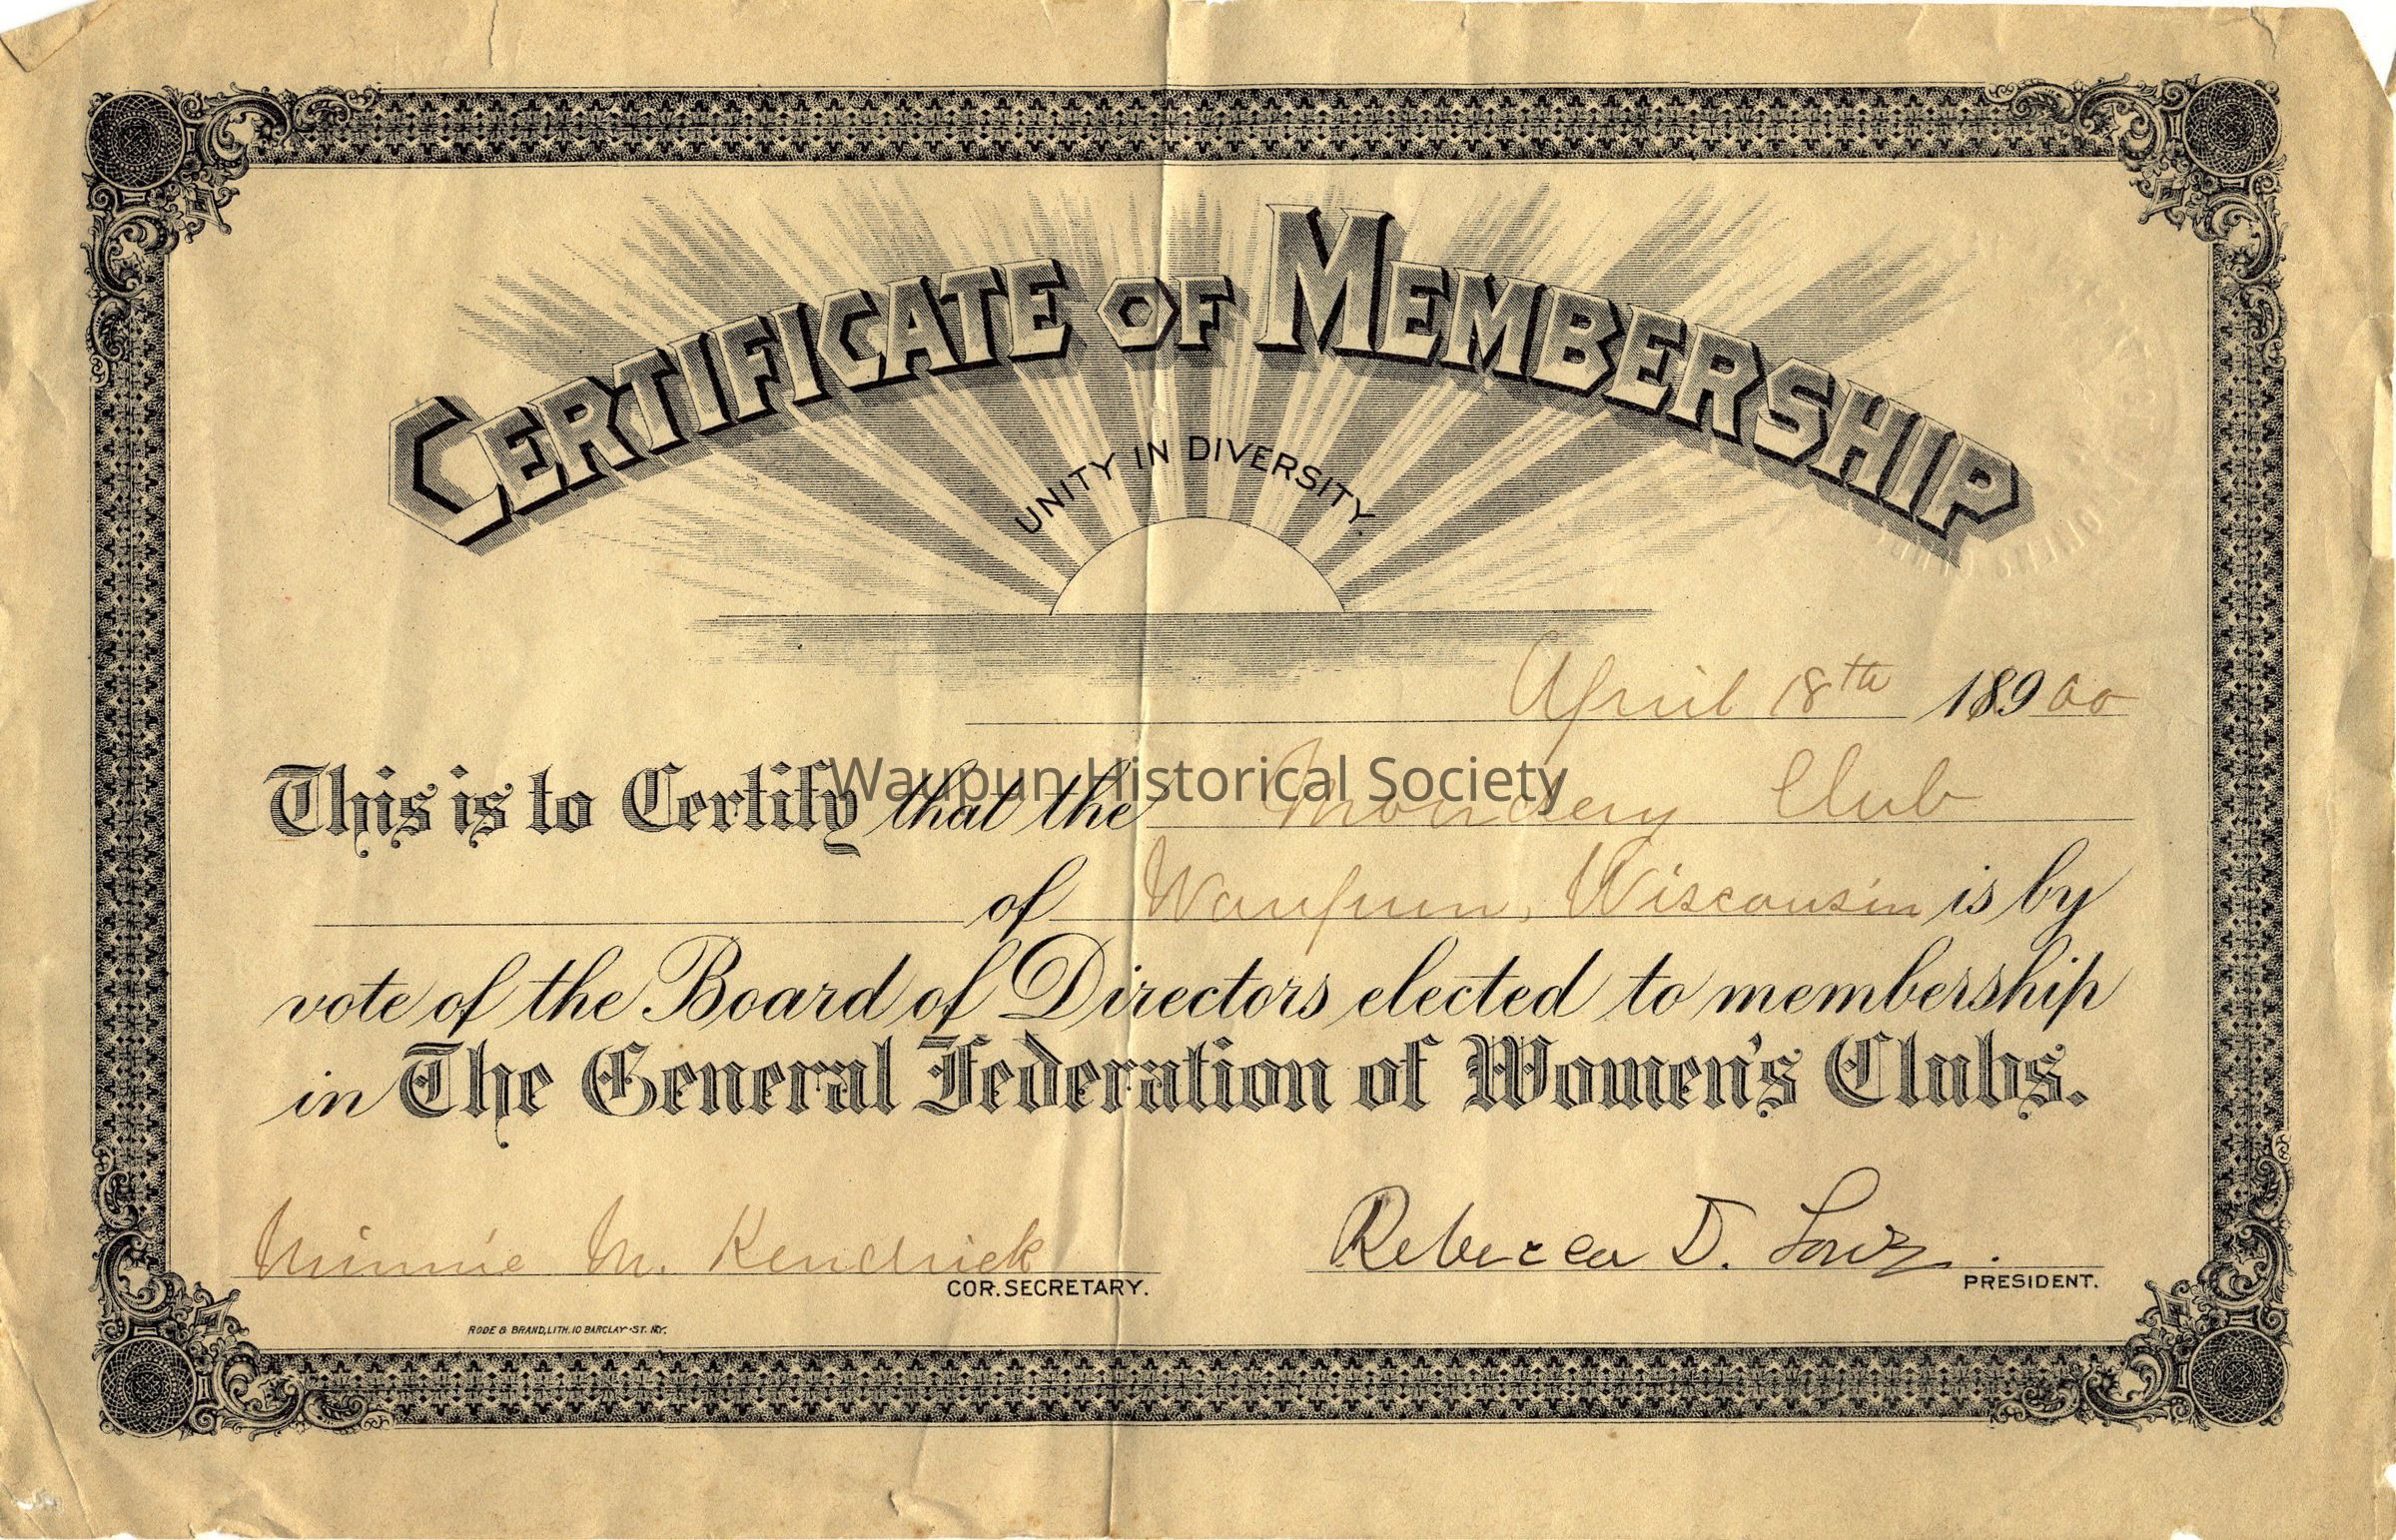 CERTIFICATE OF MEMBERSHIP
UNITY IN DIVERSITY.
April 18th 18900
Waupun Historical Society
This is to Certify that the Monday Club
of Waupun, Wisconsin is by
vote of the Board of Directors elected to membership
in The General Federation of Women's Clubs.
Minnie M. Kendrick
COR. SECRETARY.
Rebecca D. Lowe.
PRESIDENT.
RODE & BRAND, LITH. 10 BARCLAY ST. N.Y.